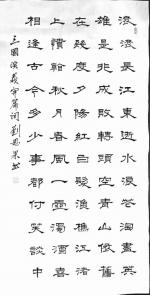 滚滚長江東逝水浪花淘盡英
雄是非成敗轉頭空青山依舊
在幾度夕陽紅白髮漁樵江渚
上慣看秋月春風一壺濁酒喜
相逢古今多少事都付笑談中
三國演義開篇詞劉